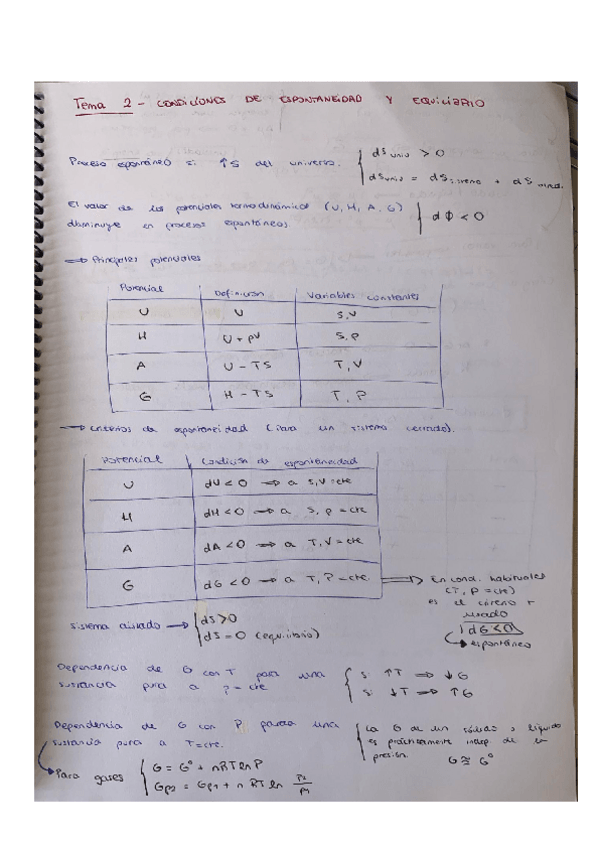 Tema 2 - CONDICIONES DE ESPONTANEIDAD Y EQUILIBRIO
Proceso espontáneo si ↑S del universo. { dS univ > 0
dS univ = dS sistema + dS
El valor de los potenciales termodinámicos (U, H, A, G) { dΦ < 0
disminuye en procesos espontáneos
⇒ Principales potenciales
Potencial Definición Variables constantes
U U S, V
H U + pV S, p
A U - TS T, V
G H - TS T, P
→ Criterios de espontaneidad (para un sistema cerrado).
Potencial Condición de espontaneidad
U dU < 0 ⇒ a S, V = cte
H dH < 0 ⇒ a S, p = cte
A dA < 0 ⇒ a T, V = cte
G dG < 0 ⇒ a T, P = cte ⇒ En cond. habituales
(T, P = cte)
es el criterio +
usado
dG < 0
espontáneo
Sistema aislado → { dS > 0
dS = 0 (equilibrio)
Dependencia de G con T para una { si ↑T ⇒ ↓G
sustancia pura a P = cte si ↓T ⇒ ↑G
Dependencia de G con P para una { La G de un sólido o líquido
sustancia pura a T = cte. es prácticamente indep. de la
presión. G ≅ G°
Para gases { G = G° + nRT ln P
Gp2 = Gp1 + nRT ln P2/P1